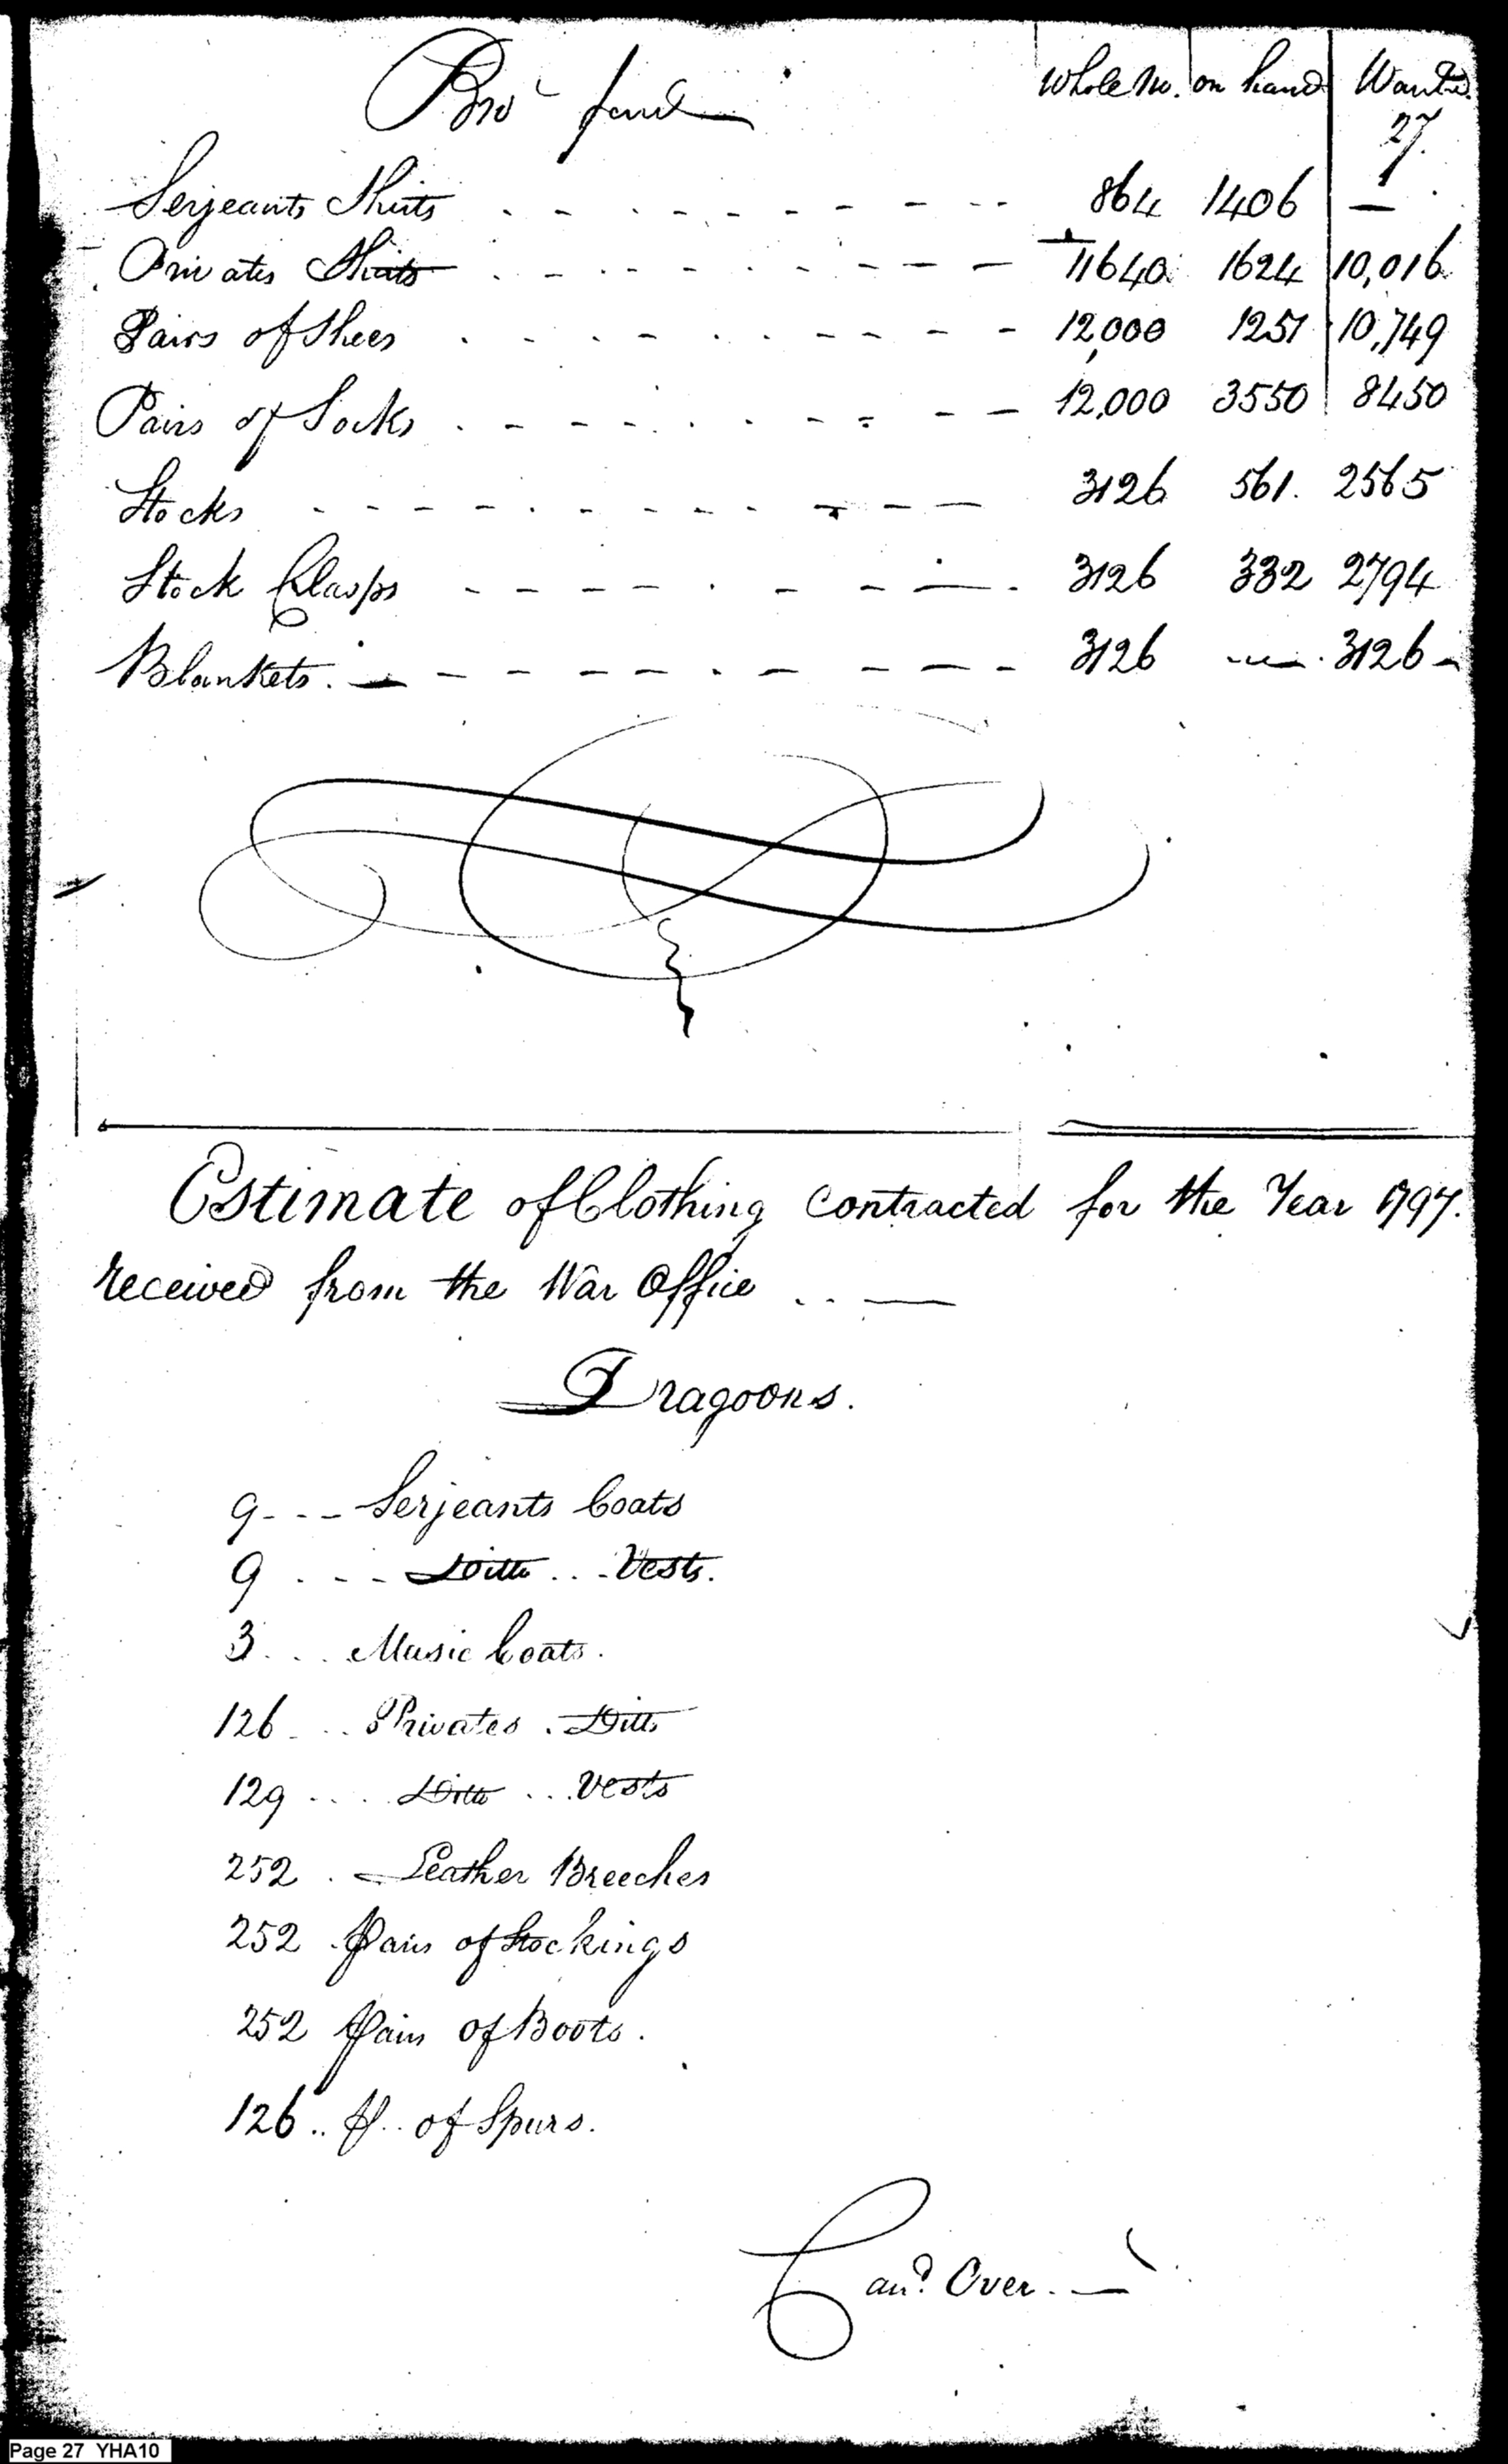 Bro't ford Whole No. on hand Wanted
27.
Serjeants Shirts - - - - - - - - - - 864 1406 —
Privates Shirts - - - - - - - - - - 11640 1624 10,016
Pairs of Shoes - - - - - - - - - - 12,000 1251 10,749
Pairs of Socks - - - - - - - - - - 12,000 3550 8450
Stocks - - - - - - - - - - - - 3126 561. 2565
Stock Clasps - - - - - - - - - - 3126 332 2794
Blankets. - - - - - - - - - - - 3126 — 3126 -
Estimate of Clothing contracted for the Year 1797.
received from the War Office .. —
Dragoons.
9 - - - Serjeants Coats
9 - - - Ditto .. Vests.
3 ... Music Coats.
126 ... Privates . Ditto
129 .... Ditto ... Vests
252 . - Leather Breeches
252 . Pairs of Stockings
252 Pairs of Boots.
126 .. P. . of Spurs.
Carrd. Over. —
Page 27 YHA10